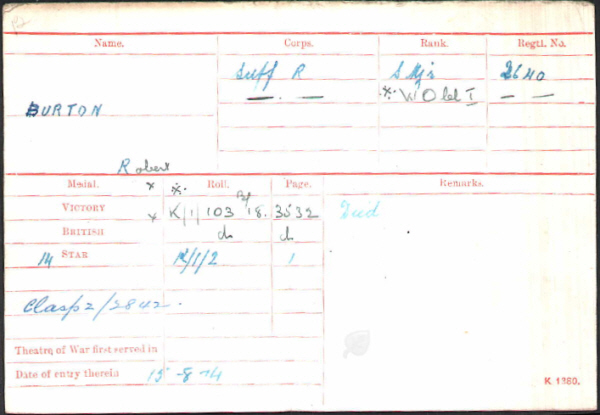 Name. Corps. Rank. Regtl. No.
Suff R S Mjr 2640
—.— * W O Cl I — —
BURTON
Robert
Medal. Roll. Page. Remarks.
* *
VICTORY * K/1/103 B18. 3532 Died
BRITISH do do
14 STAR K/1/2 1
Clasp 2/2842.
Theatre of War first served in
Date of entry therein 15-8-14
K 1380.